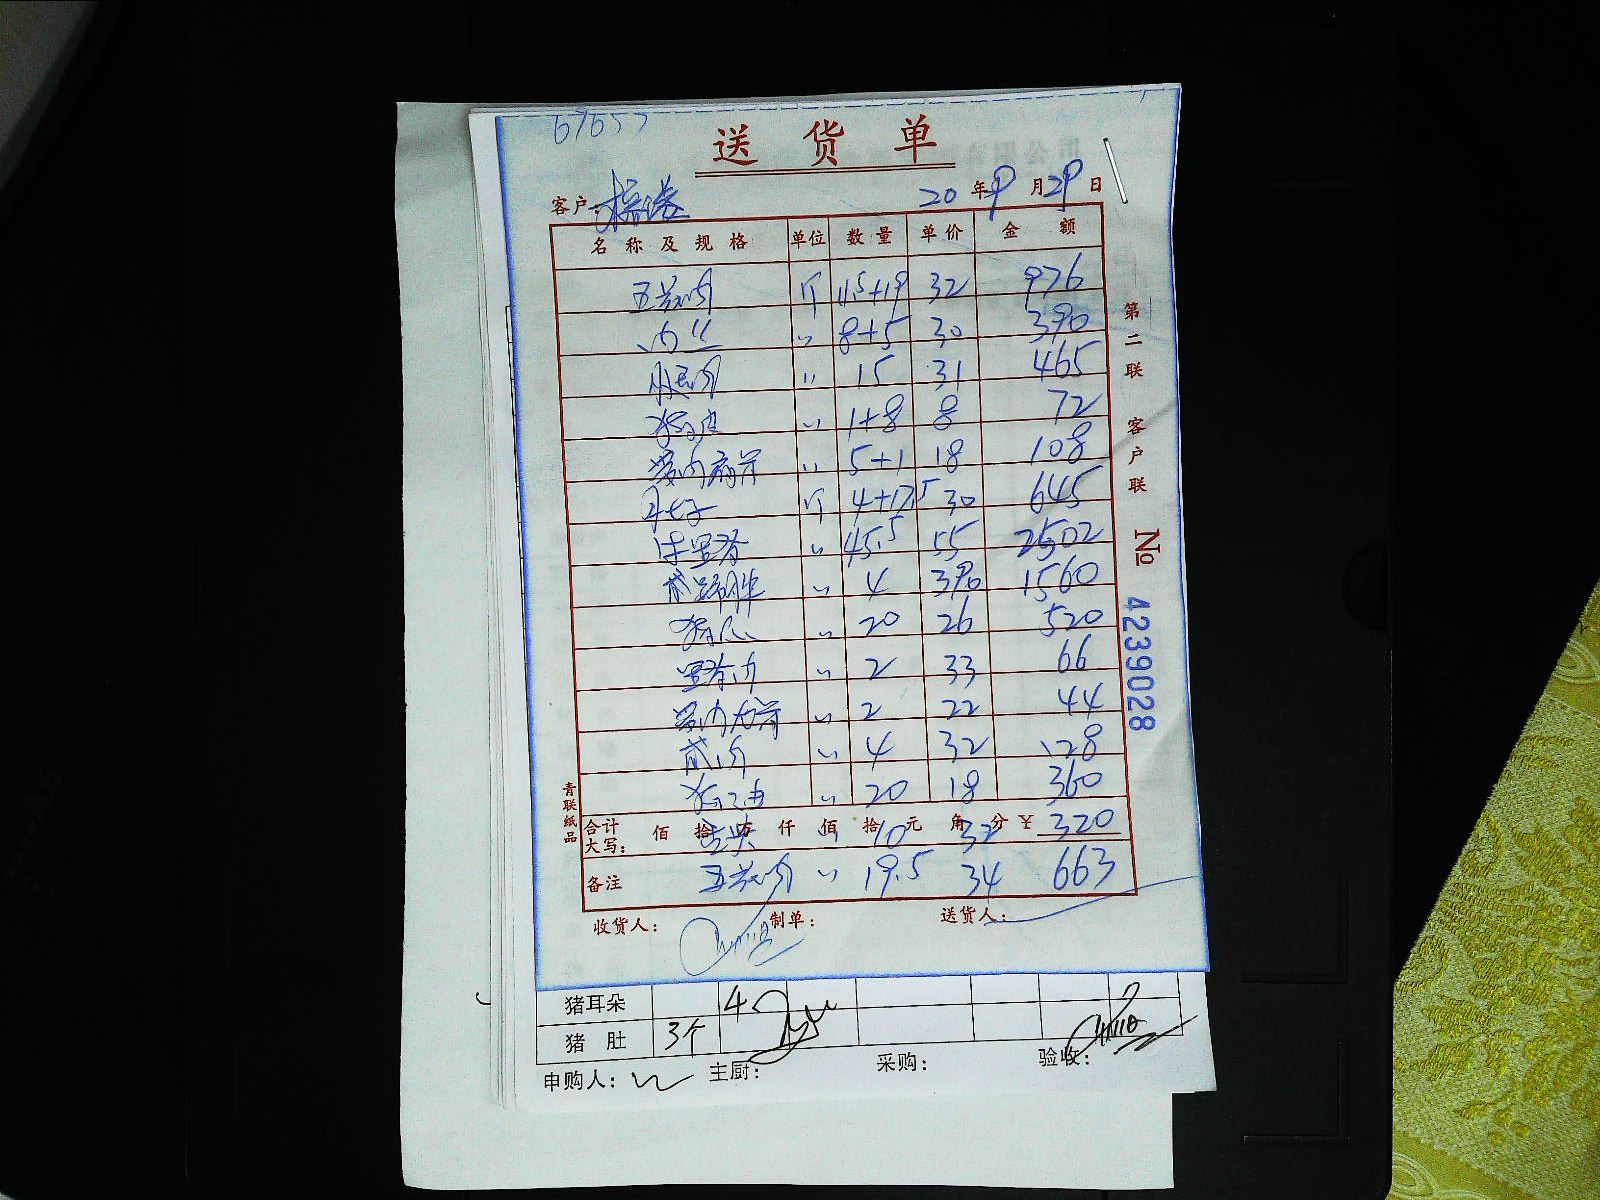 送货单
客户： 20年9月29日
名称及规格 单位 数量 单价 金额
五花肉 斤 11.5+19 32 976
肉丝 〃 8+5 30 390
腿肉 〃 15 31 465
猪皮 〃 1+8 8 72
5+1 18 108
月七子 斤 4+17.5 30 645
牛里脊 〃 45.5 55 2502
〃 4 390 1560
猪心 〃 20 26 520
里脊肉 〃 2 33 66
〃 2 22 44
前肉 〃 4 32 128
猪油 〃 20 18 360
合计大写： 佰 拾 万 仟 佰 拾 元 角 分 ￥ 320
10 32
备注 五花肉 〃 19.5 34 663
收货人： 制单： 送货人：
第二联 客户联 No 4239028
青联纸品
猪耳朵 4
猪肚 3个
申购人： 主厨： 采购： 验收：